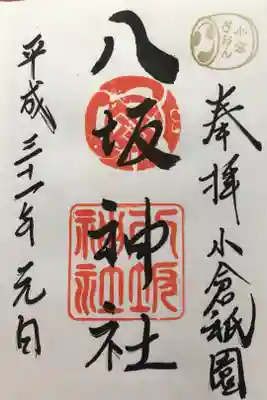 奉拝 小倉祇園
八坂神社
平成三十一年 元旦
小倉
ぎおん
八坂
神社